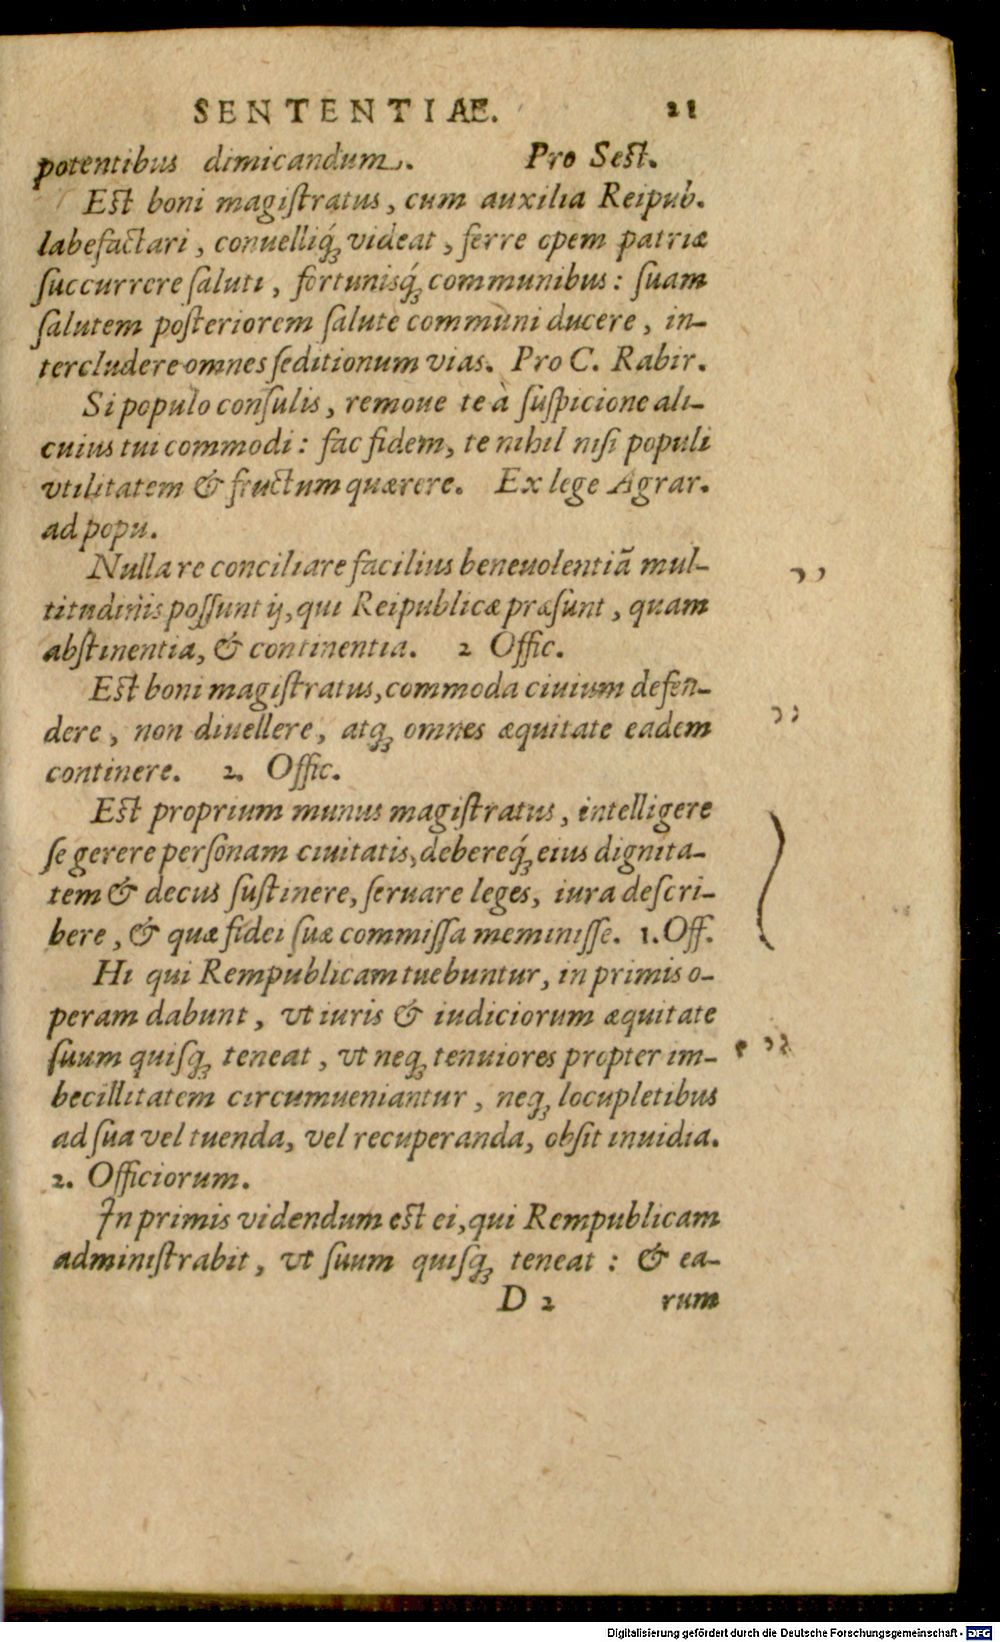 SENTENTIAE. 21
potentibus dimicandum. Pro Sest.
Est boni magiſtratus, cum auxilia Reipub.
labefactari, conuelliq́; videat, ferre opem patriæ
ſuccurrere ſaluti, fortunisq́; communibus: ſuam
ſalutem poſteriorem ſalute communi ducere, in-
tercludere omnes ſeditionum vias. Pro C. Rabir.
Si populo conſulis, remoue te à ſuſpicione ali-
cuius tui commodi: fac fidem, te nihil niſi populi
vtilitatem & fructum quærere. Ex lege Agrar.
ad popu.
Nulla re conciliare facilius beneuolentiã mul-
titudinis poſſunt ij, qui Reipublicæ præſunt, quam
abſtinentia, & continentia. 2 Offic.
Est boni magiſtratus, commoda ciuium defen-
dere, non diuellere, atq; omnes æquitate eadem
continere. 2. Offic.
Est proprium munus magiſtratus, intelligere
ſe gerere perſonam ciuitatis, debereq́; eius dignita-
tem & decus ſuſtinere, ſeruare leges, iura deſcri-
bere, & quæ fidei ſuæ commiſſa meminiſſe. 1. Off.
Hi qui Rempublicam tuebuntur, in primis o-
peram dabunt, vt iuris & iudiciorum æquitate
ſuum quiſq; teneat, vt neq; tenuiores propter im-
becillitatem circumueniantur, neq; locupletibus
ad ſua vel tuenda, vel recuperanda, obſit inuidia.
2. Officiorum.
In primis videndum est ei, qui Rempublicam
adminiſtrabit, vt ſuum quiſq; teneat: & ea-
D 2 rum
Digitalisierung gefördert durch die Deutsche Forschungsgemeinschaft - DFG